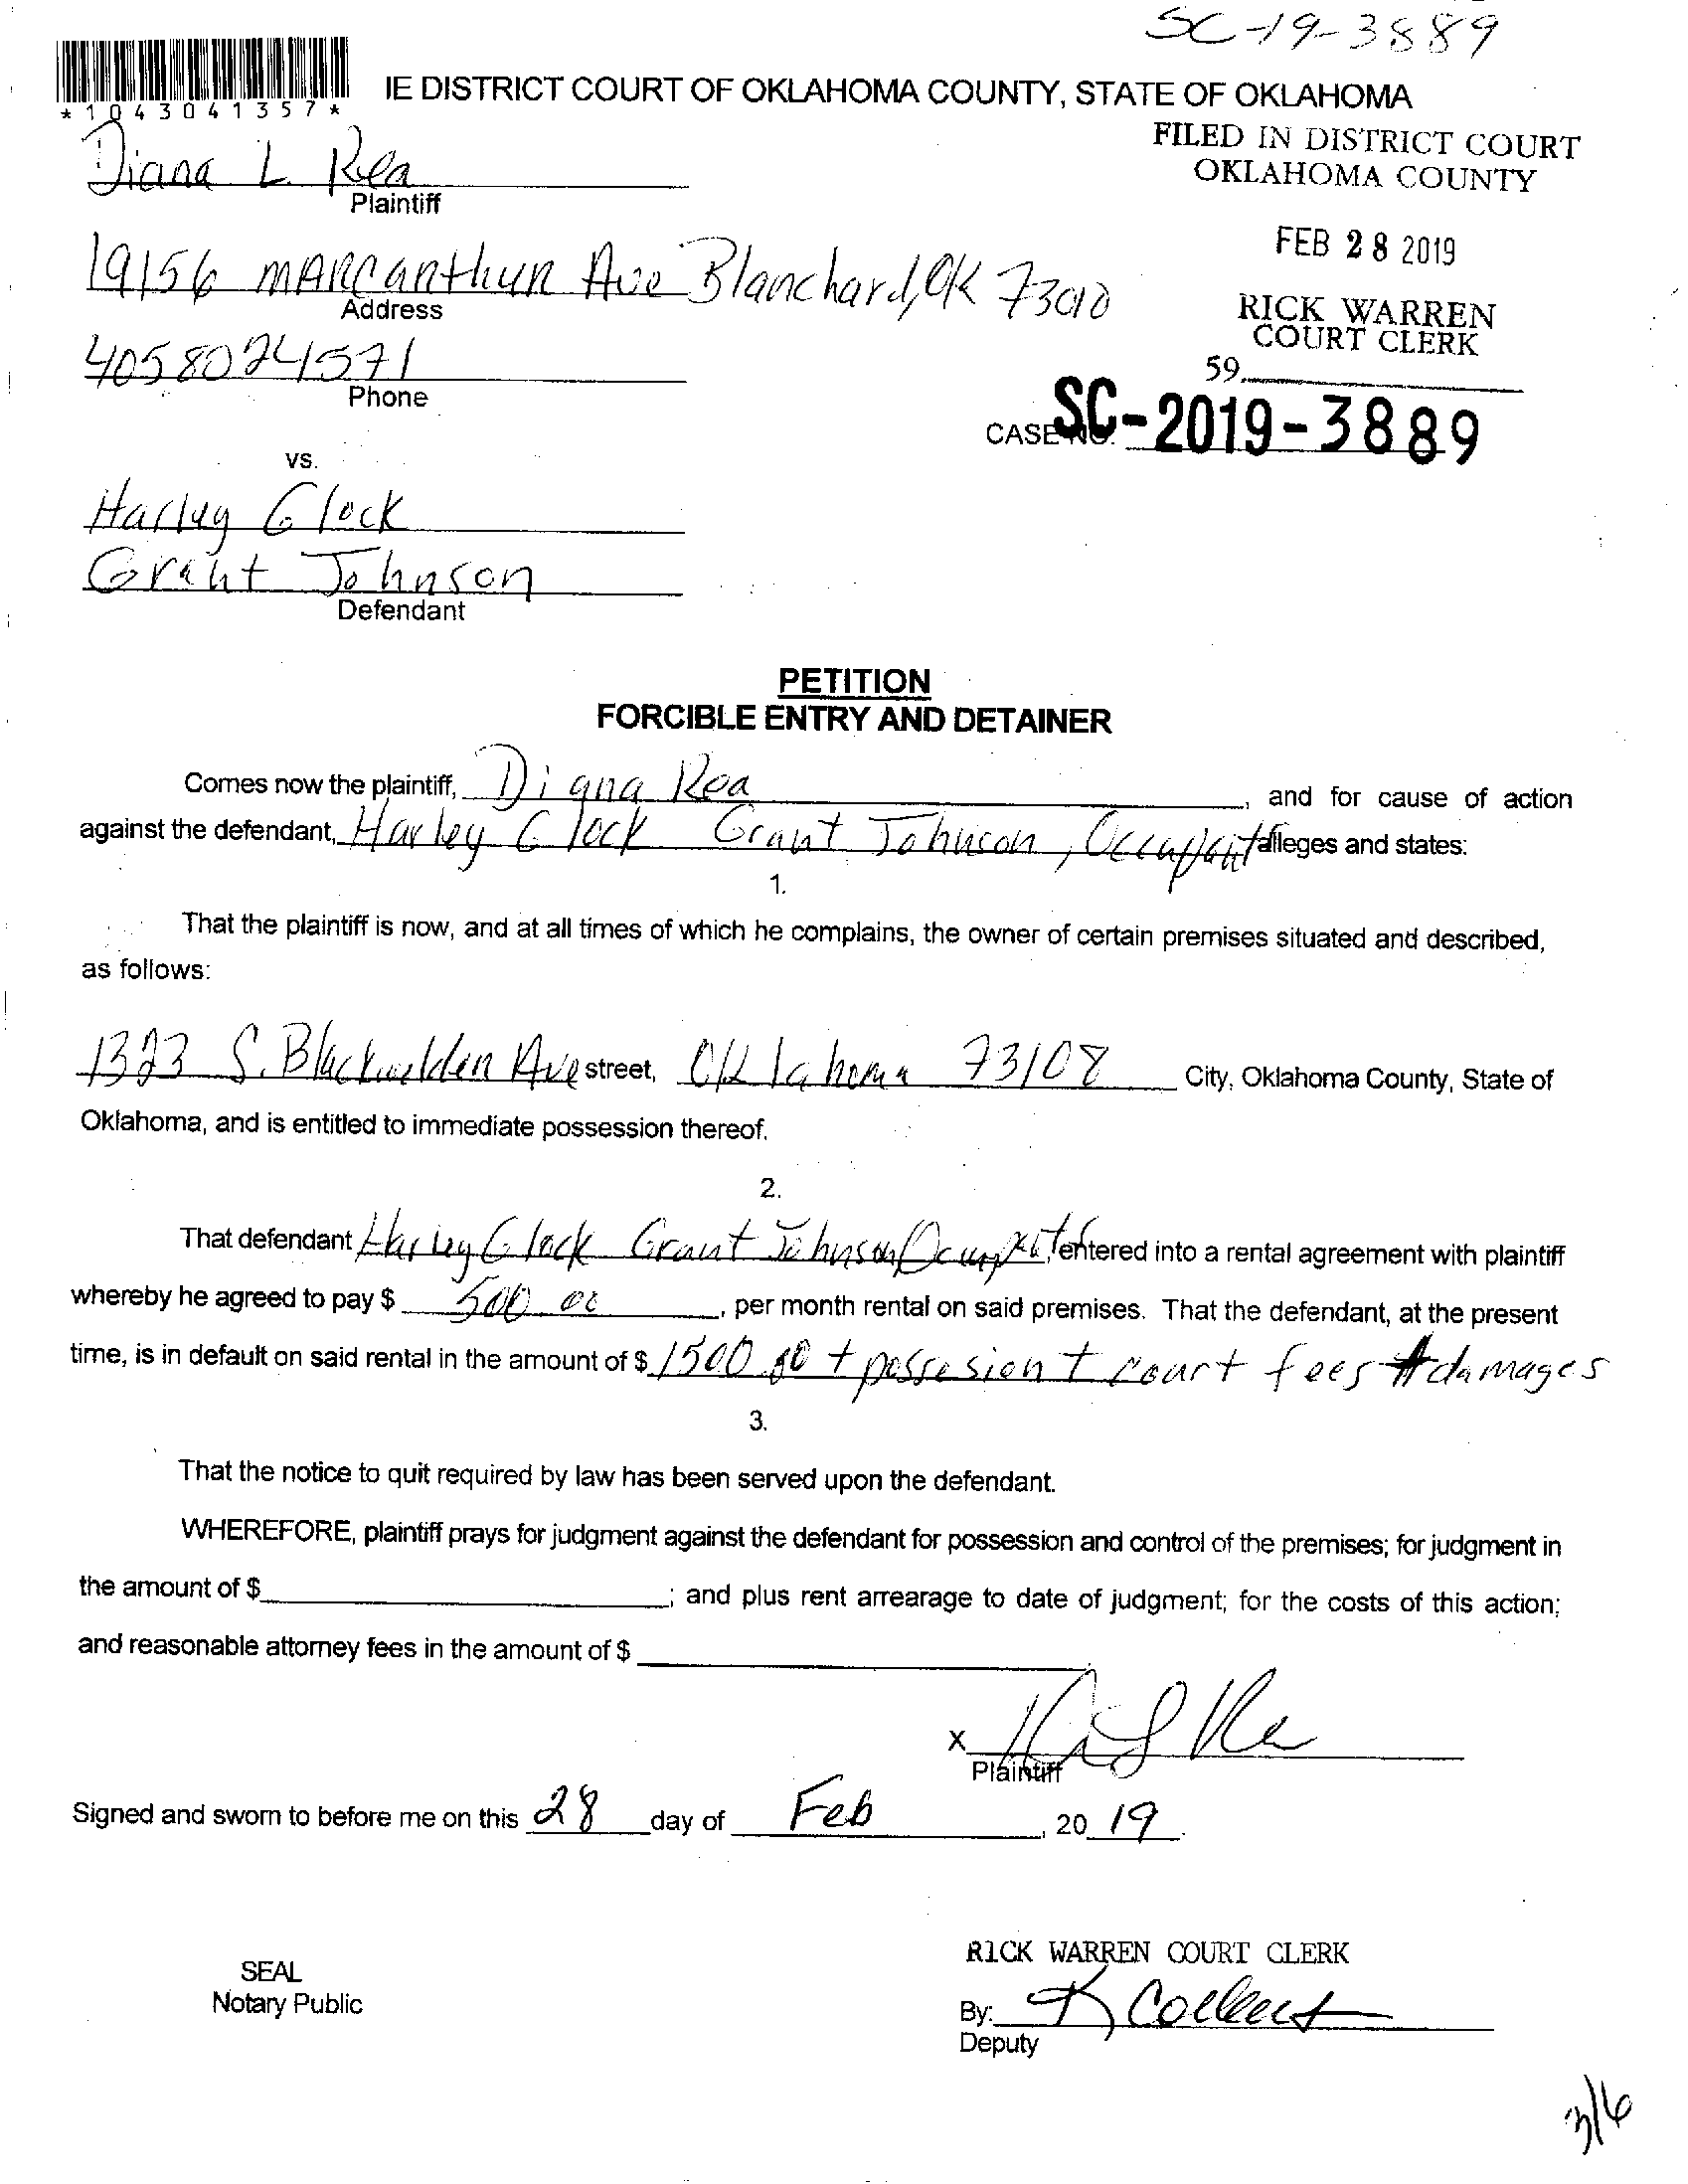 SC-19-3889
IE DISTRICT COURT OF OKLAHOMA COUNTY, STATE OF OKLAHOMA
*1043041357*
FILED IN DISTRICT COURT
OKLAHOMA COUNTY
Diana L. Rea
Plaintiff
FEB 28 2019
19156 MARCANTHUR Ave Blanchard, OK 73010
Address
RICK WARREN
COURT CLERK
4058024571
Phone
59
CASE NO. SC-2019-3889
vs.
Harley Glock
Grant Johnson
Defendant
PETITION
FORCIBLE ENTRY AND DETAINER
Comes now the plaintiff, Diana Rea, and for cause of action
against the defendant, Harley Glock Grant Johnson, Occupant alleges and states:
1.
That the plaintiff is now, and at all times of which he complains, the owner of certain premises situated and described,
as follows:
1323 S. Blackwelder Ave street, Oklahoma 73108 City, Oklahoma County, State of
Oklahoma, and is entitled to immediate possession thereof.
2.
That defendant Harley Glock Grant Johnson Occupant entered into a rental agreement with plaintiff
whereby he agreed to pay $ 500 00, per month rental on said premises. That the defendant, at the present
time, is in default on said rental in the amount of $ 1500 00 + possesion + court fees + damages
3.
That the notice to quit required by law has been served upon the defendant.
WHEREFORE, plaintiff prays for judgment against the defendant for possession and control of the premises; for judgment in
the amount of $ ; and plus rent arrearage to date of judgment; for the costs of this action;
and reasonable attorney fees in the amount of $
X
Plaintiff
Signed and sworn to before me on this 28 day of Feb, 20 19.
RICK WARREN COURT CLERK
SEAL
Notary Public
By:
Deputy
3/6